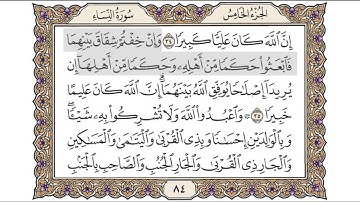 الجزء الخامس
سورة النساء
إِنَّ ٱللَّهَ كَانَ عَلِيًّا كَبِيرًا ٣٤ وَإِنْ خِفْتُمْ شِقَاقَ بَيْنِهِمَا
فَٱبْعَثُوا۟ حَكَمًا مِّنْ أَهْلِهِۦ وَحَكَمًا مِّنْ أَهْلِهَآ إِن
يُرِيدَآ إِصْلَٰحًا يُوَفِّقِ ٱللَّهُ بَيْنَهُمَآ إِنَّ ٱللَّهَ كَانَ عَلِيمًا
خَبِيرًا ٣٥ وَٱعْبُدُوا۟ ٱللَّهَ وَلَا تُشْرِكُوا۟ بِهِۦ شَيْـًٔا
وَبِٱلْوَٰلِدَيْنِ إِحْسَٰنًا وَبِذِى ٱلْقُرْبَىٰ وَٱلْيَتَٰمَىٰ وَٱلْمَسَٰكِينِ
وَٱلْجَارِ ذِى ٱلْقُرْبَىٰ وَٱلْجَارِ ٱلْجُنُبِ وَٱلصَّاحِبِ بِٱلْجَنۢبِ
٨٤